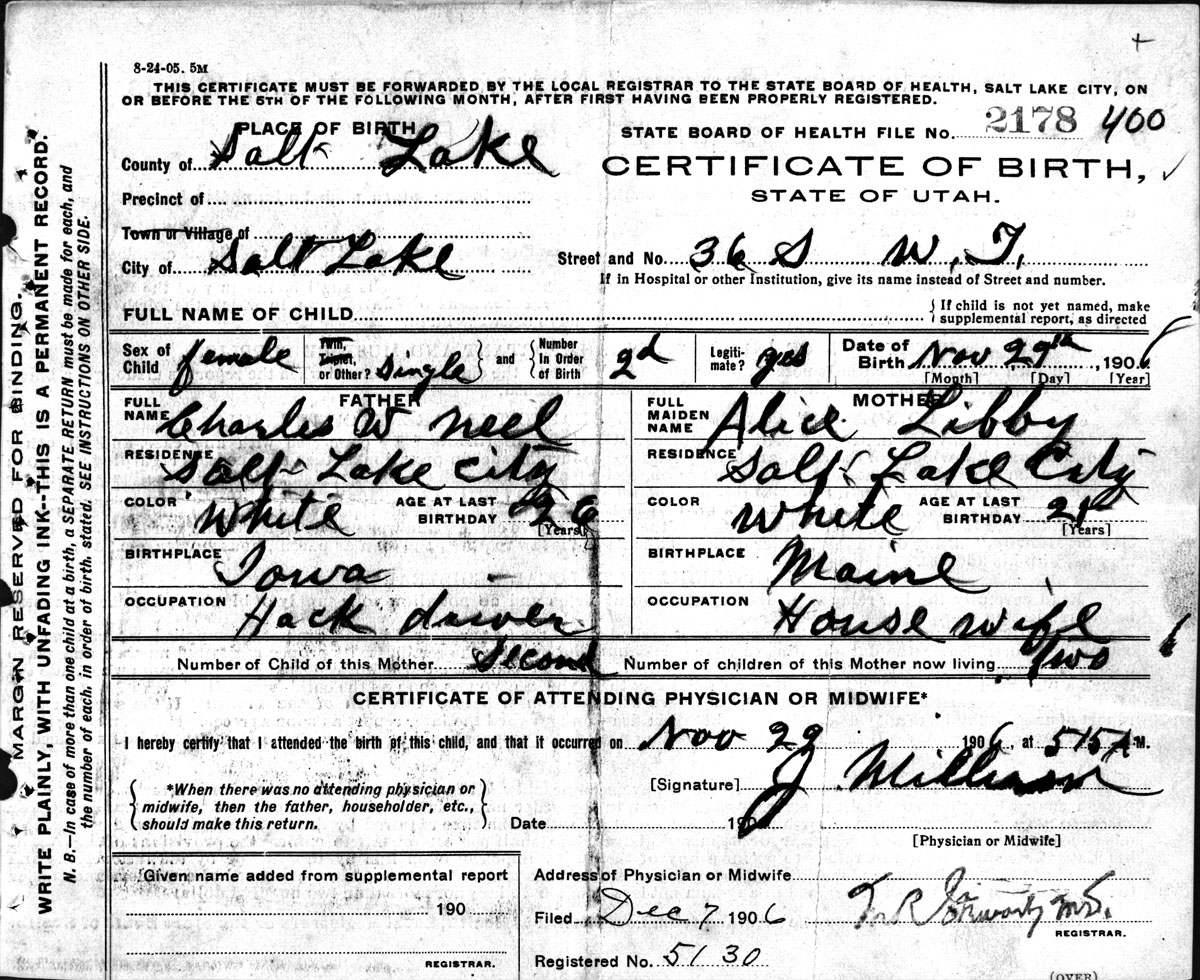 8-24-05. 5M
THIS CERTIFICATE MUST BE FORWARDED BY THE LOCAL REGISTRAR TO THE STATE BOARD OF HEALTH, SALT LAKE CITY, ON
OR BEFORE THE 5TH OF THE FOLLOWING MONTH, AFTER FIRST HAVING BEEN PROPERLY REGISTERED.
PLACE OF BIRTH
STATE BOARD OF HEALTH FILE No. 2178 400
County of Salt Lake
CERTIFICATE OF BIRTH,
STATE OF UTAH.
Precinct of
Town or Village of
City of Salt Lake
Street and No. 36 S W. T.
If in Hospital or other Institution, give its name instead of Street and number.
FULL NAME OF CHILD
If child is not yet named, make
supplemental report, as directed
Sex of Child female
Twin, Triplet, or Other? Single and Number In Order of Birth 2d
Legiti-mate? yes
Date of Birth Nov 29th, 1906
[Month] [Day] [Year]
FATHER
FULL NAME Charles W Neel
RESIDENCE Salt Lake City
COLOR White AGE AT LAST BIRTHDAY 26
[Years]
BIRTHPLACE Iowa
OCCUPATION Hack driver
MOTHER
FULL MAIDEN NAME Alice Libby
RESIDENCE Salt Lake City
COLOR White AGE AT LAST BIRTHDAY 21
[Years]
BIRTHPLACE Maine
OCCUPATION House wife
Number of Child of this Mother Second Number of children of this Mother now living Two
CERTIFICATE OF ATTENDING PHYSICIAN OR MIDWIFE*
I hereby certify that I attended the birth of this child, and that it occurred on Nov 29 1906, at 515 A M.
*When there was no attending physician or
midwife, then the father, householder, etc.,
should make this return.
[Signature] J
Date 190
[Physician or Midwife]
Given name added from supplemental report
190
REGISTRAR.
Address of Physician or Midwife
Filed Dec 7 1906
REGISTRAR.
Registered No. 5130
(OVER)
MARGIN RESERVED FOR BINDING.
WRITE PLAINLY, WITH UNFADING INK--THIS IS A PERMANENT RECORD.
N. B.—In case of more than one child at a birth, a SEPARATE RETURN must be made for each, and
the number of each, in order of birth, stated. SEE INSTRUCTIONS ON OTHER SIDE.